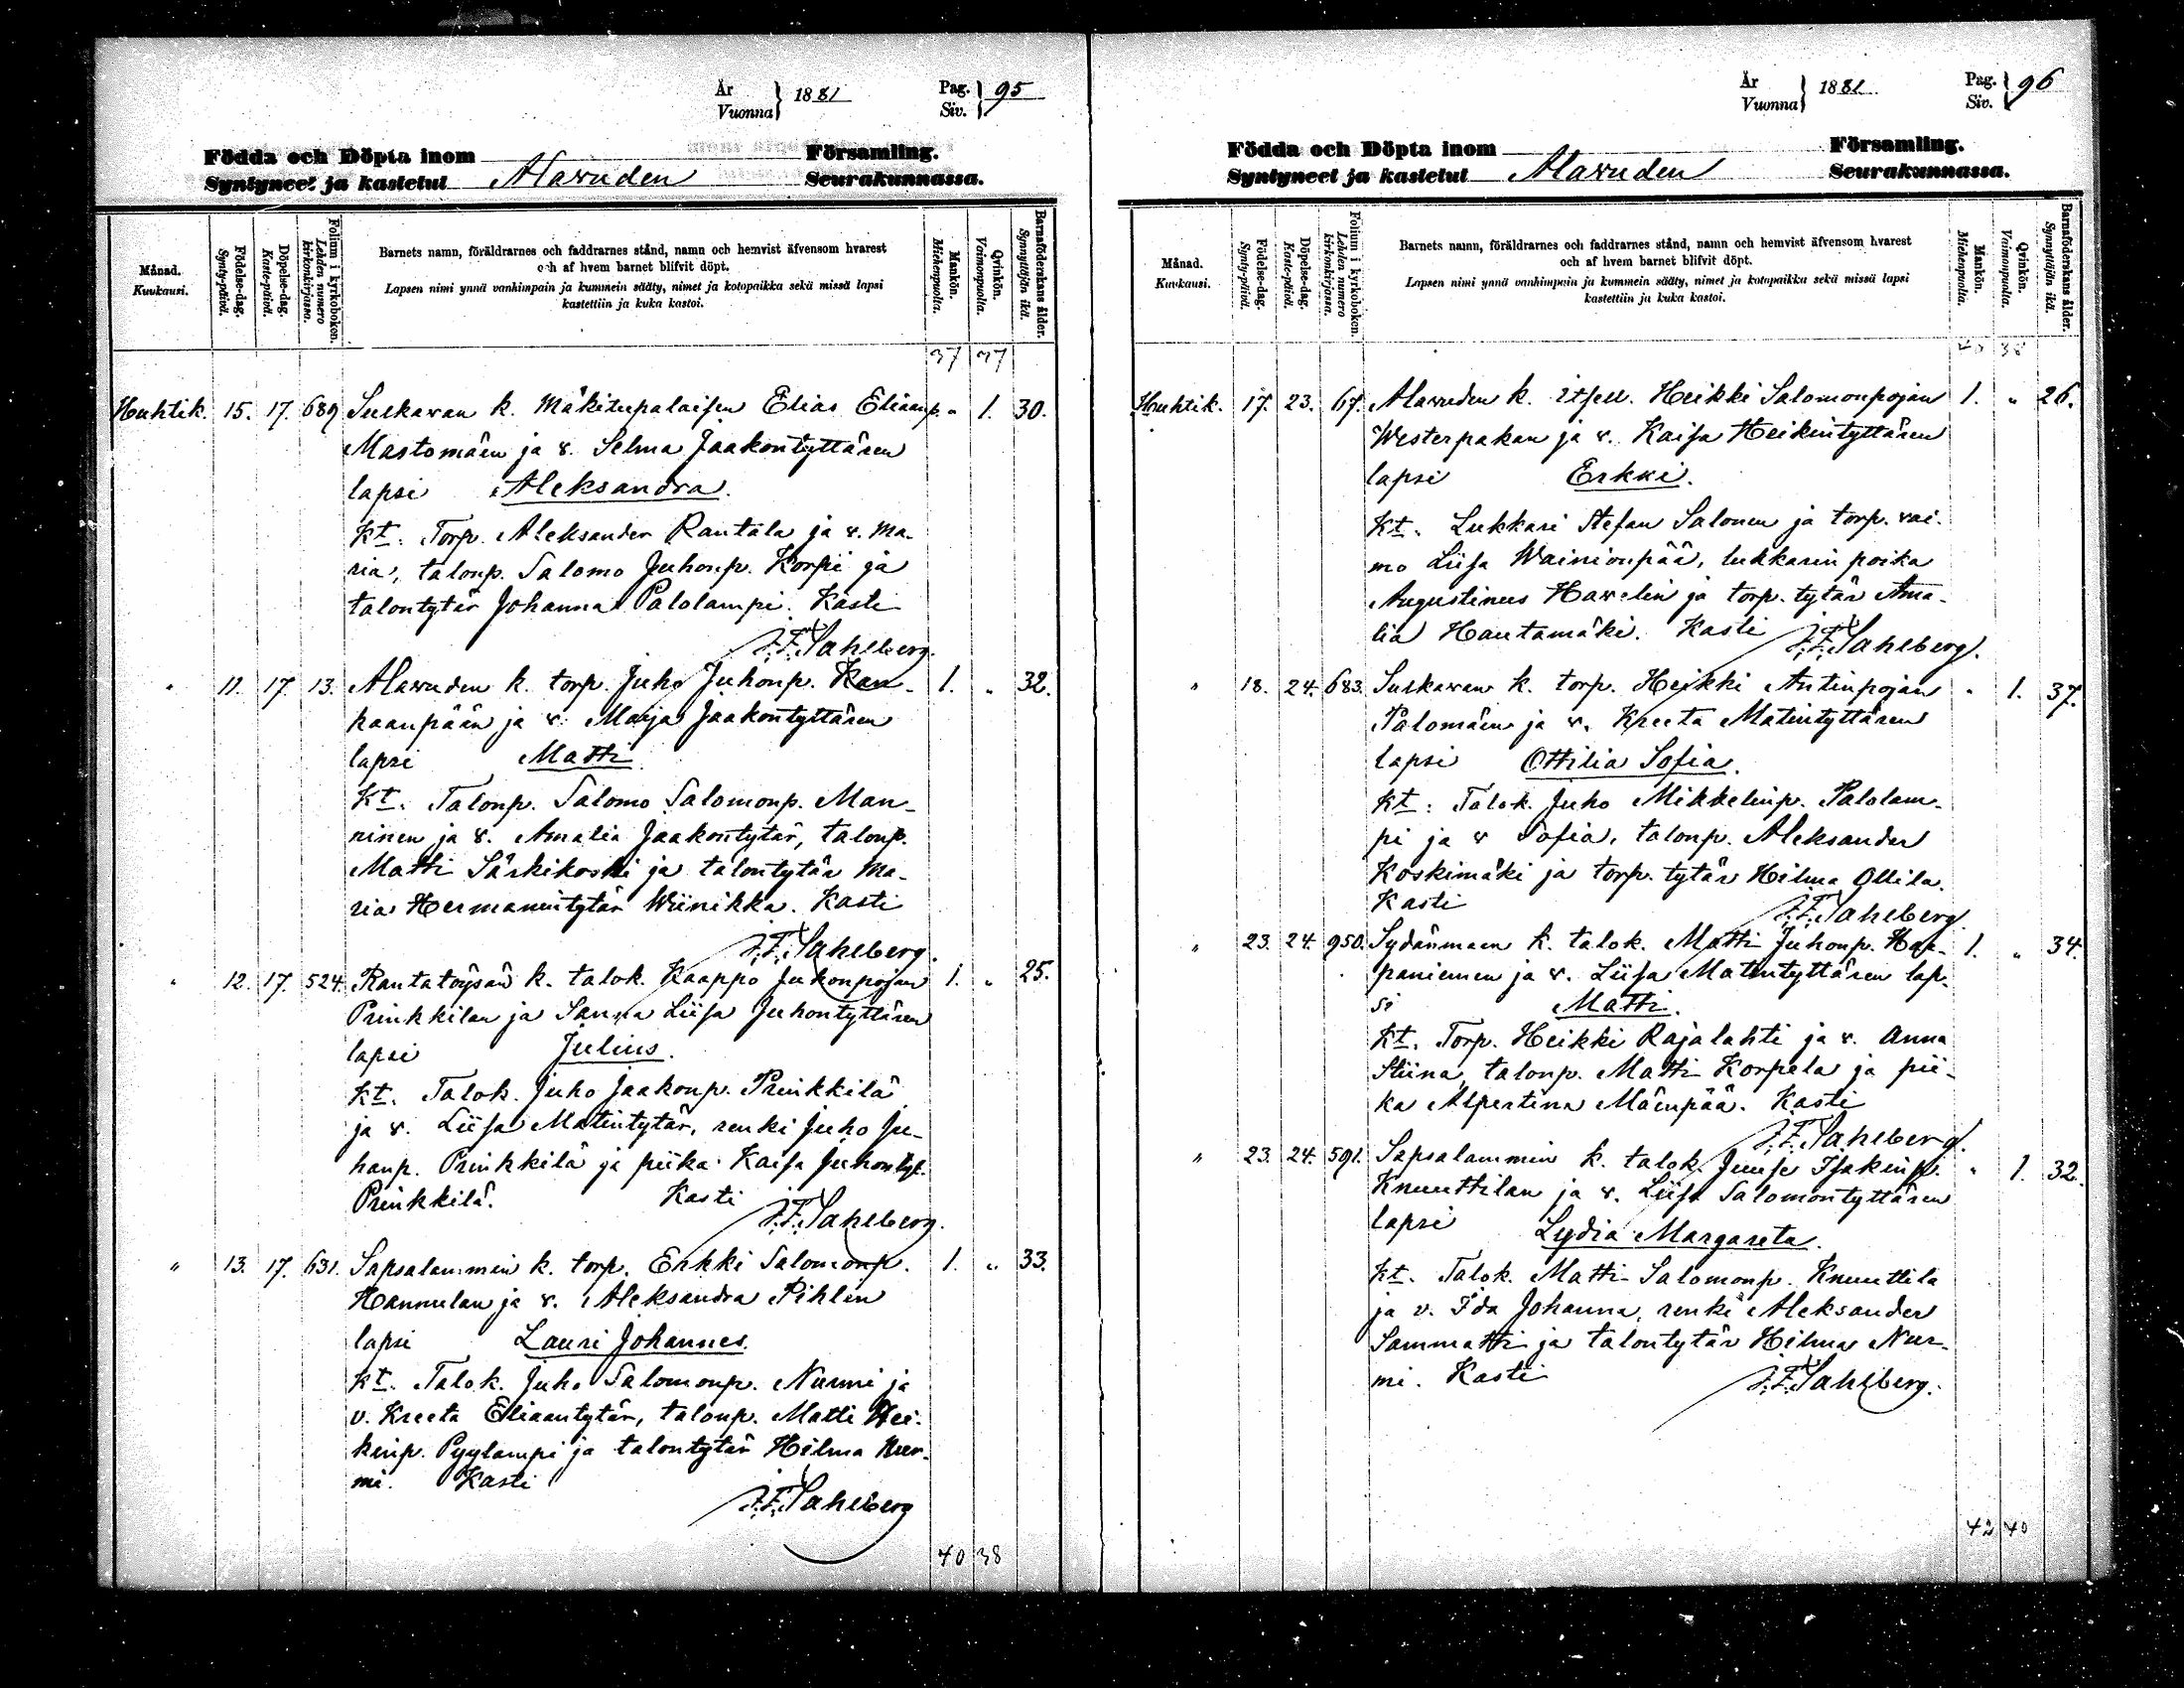 År
Vuonna } 1881
Pag.
Siv. } 95
Födda och Döpta inom Församling.
Syntyneet ja kastetut Alavuden Seurakunnassa.
Månad.
Kuukausi.
Födelse-dag.
Synty-päivä.
Döpelse-dag.
Kaste-päivä.
Folium i kyrkoboken.
Lehden numero
kirkonkirjassa.
Barnets namn, föräldrarnes och faddrarnes stånd, namn och hemvist äfvensom hvarest
och af hvem barnet blifvit döpt.
Lapsen nimi ynnä vanhimpain ja kummein sääty, nimet ja kotopaikka sekä missä lapsi
kastettiin ja kuka kastoi.
Mankön.
Miehenpuolia.
Qvinkön.
Vaimonpuolia.
Barnaföderskans ålder.
Synnyttäjän ikä.
37 37
Huhtik. 15. 17. 689 Sulkavan k. Mäkitupalaisen Elias Eliaanp. " 1. 30.
Mastomäen ja v. Selma Jaakontyttären
lapsi Aleksandra.
Kt. Torp. Aleksander Rantala ja v. Ma-
ria, talonp. Salomo Juhonp. Korpi ja
talontytär Johanna Palolampi. Kasti
J.F. Sahlberg.
" 11. 17. 13. Alavuden k. torp. Juho Juhonp. Kan- 1. " 32.
kaanpään ja v. Maija Jaakontyttären
lapsi Matti
Kt. Talonp. Salomo Salomonp. Man-
ninen ja v. Amalia Jaakontytär, talonp.
Matti Särkikoski ja talontytär Ma-
ria Hermannintytär Wiinikka. Kasti
J.F. Sahlberg.
" 12. 17. 524. Rantatöysän k. talok. Kaappo Juhonpojan 1. " 25.
Prinkkilan ja Sanna Liisa Juhontyttären
lapsi Julius.
Kt. Talok. Juho Jaakonp. Prinkkilä
ja v. Liisa Matintytär, renki Juho Ju-
honp. Prinkkilä ja piika Kaisa Juhontyt.
Prinkkilä. Kasti
J.F. Sahlberg.
" 13. 17. 631. Sapsalammin k. torp. Erkki Salomonp. 1. " 33.
Hannulan ja v. Aleksandra Pihlin
lapsi Lauri Johannes.
Kt. Talok. Juho Salomonp. Nurmi ja
v. Kreeta Eliaantytär, talonp. Matti Hei-
kinp. Pyylampi ja talontytär Hilma Nur-
mi. Kasti
J.F. Sahlberg
40 38
År
Vuonna } 1881
Pag.
Siv. } 96
Födda och Döpta inom Församling.
Syntyneet ja kastetut Alavuden Seurakunnassa.
Månad.
Kuukausi.
Födelse-dag.
Synty-päivä.
Döpelse-dag.
Kaste-päivä.
Folium i kyrkoboken.
Lehden numero
kirkonkirjassa.
Barnets namn, föräldrarnes och faddrarnes stånd, namn och hemvist äfvensom hvarest
och af hvem barnet blifvit döpt.
Lapsen nimi ynnä vanhimpain ja kummein sääty, nimet ja kotopaikka sekä missä lapsi
kastettiin ja kuka kastoi.
Mankön.
Miehenpuolia.
Qvinkön.
Vaimonpuolia.
Barnaföderskans ålder.
Synnyttäjän ikä.
40 38
Huhtik. 17. 23. 67. Alavuden k. itsell. Heikki Salomonpojan 1. " 26.
Westerpakan ja v. Kaisa Heikintyttären
lapsi Erkki.
Kt. Lukkari Stefan Salonen ja torp. vai-
mo Liisa Wainionpää, lukkarin poika
Augustinus Havelin ja torp. tytär Ama-
lia Hautamäki. Kasti
J.F. Sahlberg.
" 18. 24. 683. Sulkavan k. torp. Heikki Antinpojan " 1. 37.
Palomäen ja v. Kreeta Matintyttären
lapsi Ottilia Sofia.
Kt. Talok. Juho Mikkelinp. Palolam-
pi ja v Sofia, talonp. Aleksander
Koskimäki ja torp. tytär Hilma Ollila.
Kasti
J.F. Sahlberg
" 23. 24. 950. Sydänmaan k. talok. Matti Juhonp. Haa- 1. " 34.
paniemen ja v. Liisa Matintyttären lap-
si Matti.
Kt. Torp. Heikki Rajalahti ja v. Anna
Stiina, talonp. Matti Korpela ja pii-
ka Alpertina Mäenpää. Kasti
J.F. Sahlberg.
" 23. 24. 591. Sapsalammin k. talok. Juuse Isakinp. " 1. 32.
Knuuttilan ja v. Liisa Salomontyttären
lapsi Lydia Margareta.
Kt. Talok. Matti Salomonp. Knuuttila
ja v. Ida Johanna, renki Aleksander
Sammatti ja talontytär Hilma Nur-
mi. Kasti
J.F. Sahlberg.
42 40